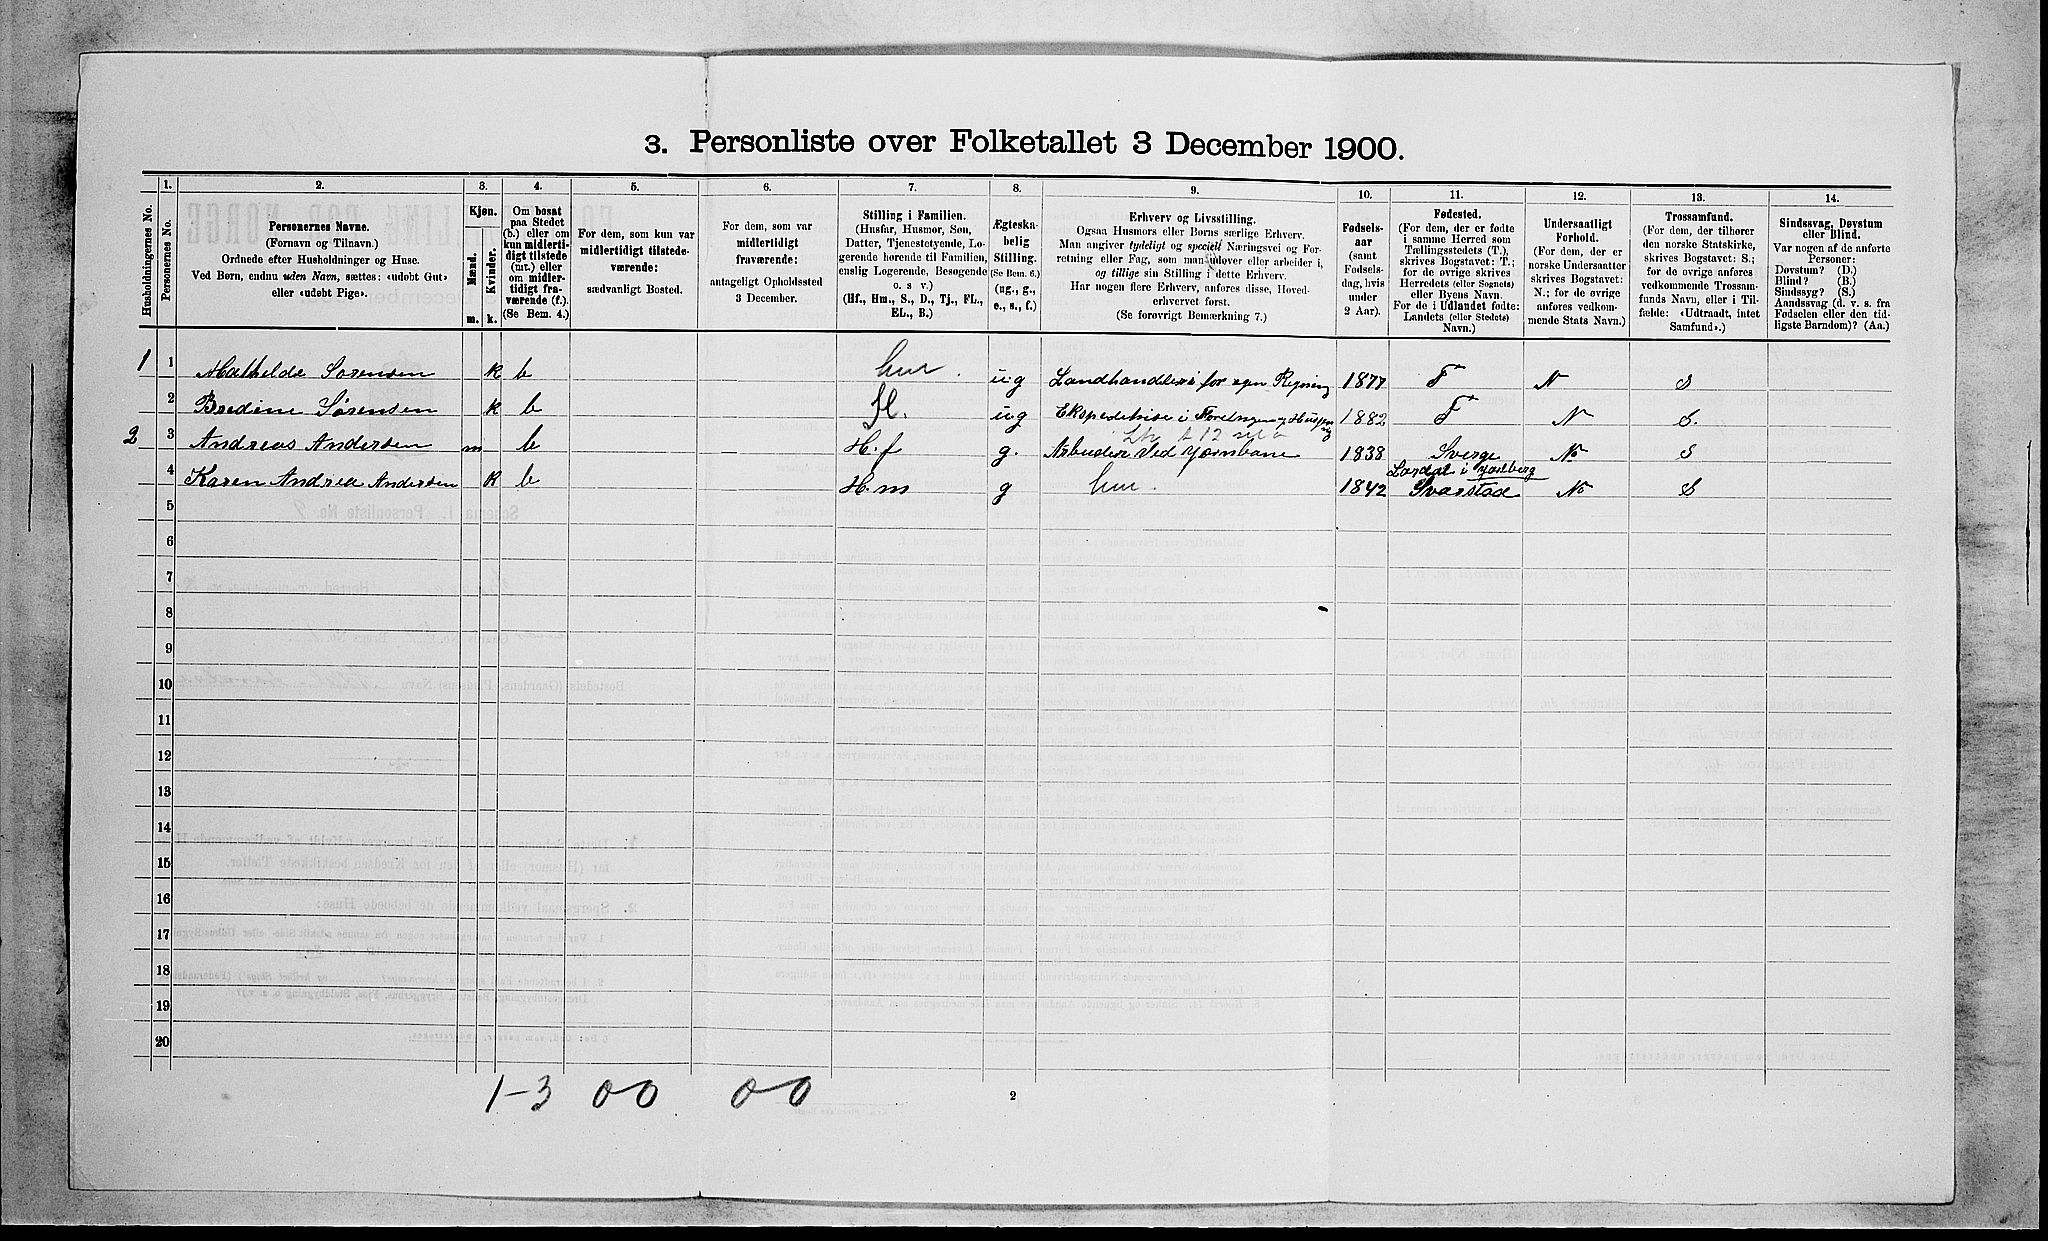 3. Personliste over Folketallet 3 December 1900.
Husholdningernes No.
1.
Personernes No.
2.
Personernes Navne.
(Fornavn og Tilnavn.)
Ordnede efter Husholdninger og Huse.
Ved Børn, endnu uden Navn, sættes: «udøbt Gut»
eller «udøbt Pige».
3.
Kjøn.
Mænd.
Kvinder.
m.
k.
4.
Om bosat
paa Stedet
(b.) eller om
kun midlerti-
digt tilstede
(mt.) eller
om midler-
tidigt fra-
værende (f.).
(Se Bem. 4.)
5.
For dem, som kun var
midlertidigt tilstede-
værende:
sædvanligt Bosted.
6.
For dem, som var
midlertidigt
fraværende:
antageligt Opholdssted
3 December.
7.
Stilling i Familien.
(Husfar, Husmor, Søn,
Datter, Tjenestetyende, Lo-
gerende hørende til Familien,
enslig Logerende, Besøgende
o. s v.)
(Hf., Hm., S., D., Tj., FL.,
EL., B.)
8.
Ægteska-
belig
Stilling.
(Se Bem. 6.)
(ug., g.,
e., s., f.)
9.
Erhverv og Livsstilling.
Ogsaa Husmors eller Børns særlige Erhverv.
Man angiver tydeligt og specielt Næringsvei og For-
retning eller Fag, som man udøver eller arbeider i,
og tillige sin Stilling i dette Erhverv.
Har nogen flere Erhverv, anføres disse, Hoved-
erhvervet først.
(Se forøvrigt Bemærkning 7.)
10.
Fødsels-
aar
(samt
Fødsels-
dag, hvis
under
2 Aar).
11.
Fødested.
(For dem, der er fødte
i samme Herred som
Tællingsstedets (T.),
skrives Bogstavet: T.;
for de øvrige skrives
Herredets (eller Sognets)
eller Byens Navn.
For de i Udlandet fødte:
Landets (eller Stedets)
Navn.)
12.
Undersaatligt
Forhold.
(For dem, der er
norske Undersaatter
skrives Bogstavet:
N.; for de øvrige
anføres vedkom-
mende Stats Navn.)
13.
Trossamfund.
(For dem, der tilhører
den norske Statskirke,
skrives Bogstavet: S.;
for de øvrige anføres
vedkommende Trossam-
funds Navn, eller i Til-
fælde: «Udtraadt, intet
Samfund».)
14.
Sindssvag, Døvstum
eller Blind.
Var nogen af de anførte
Personer:
Døvstum? (D.)
Blind? (B.)
Sindssyg? (S.)
Aandssvag (d. v. s. fra
Fødselen eller den tid-
ligste Barndom)? (Aa.)
1 1 Mathilde Sørensen k b hm. ug Landhandleri for egen Regning 1877 T N S
2 Bredine Sørensen k b fl. ug Ekspeditrise i Forretningen og Husgjerning 1882 T N S.
2 3 Andreas Andersen m b H.f g. Arbeider Ved Jærnbane 1838 Sverge No S
4 Karen Andrea Andersen k b H.m g hm. 1842 Lardal i Jarlberg
Svarstad No S
5
6
7
8
9
10
11
12
13
14
15
16
17
18
19
20
1-3 00 00
2